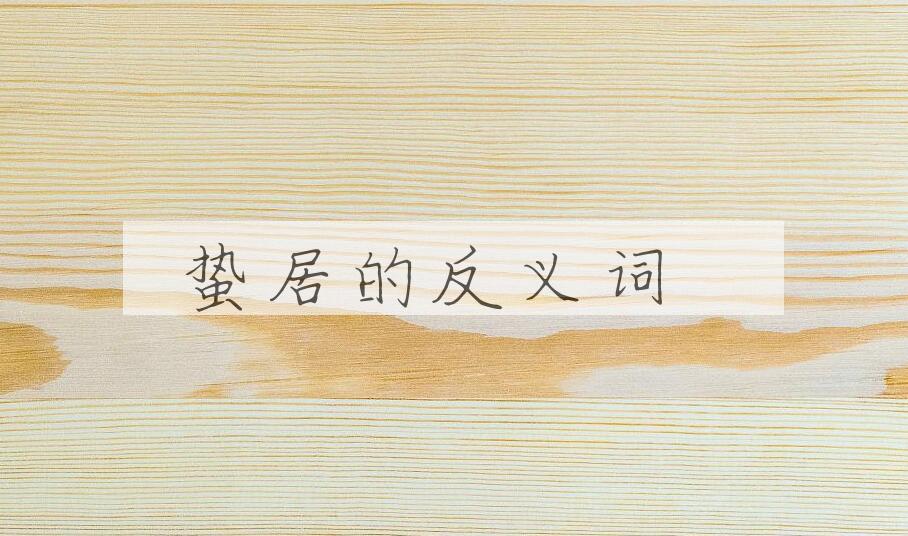 蛰居的反义词